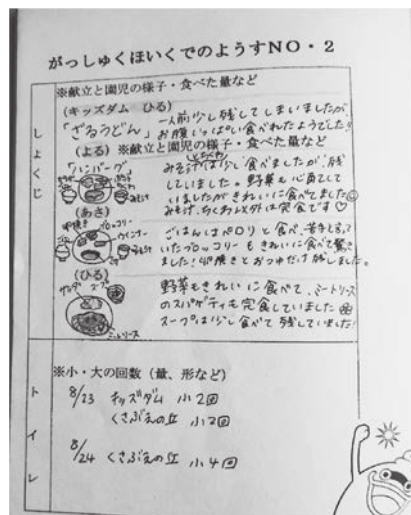 がっしゅくほいくでのようすNO・2
しょくじ
※献立と園児の様子・食べた量など
(キッズダム ひる)
「ざるうどん」
一人前少し残してしまいましたが
お腹いっぱい食べれたようでした!!
(よる) ※献立と園児の様子・食べた量など
「ハンバーグ」
みそ汁は少し食べましたが、残
していました。野菜も心配して
いましたがきれいに食べてました
みそ汁、ちくわ以外は完食です♡
(あさ)
ブロッコリー
ウインナー
ごはんはペロリと食べ、苦手と言って
いたブロッコリーもきれいに食べて驚き
ました!卵焼きとおつゆだけ残しました。
(ひる)
サラダ
スープ
ミートソース
野菜もきれいに食べて、ミートソース
のスパゲティも完食していました
スープは少し食べて残していました!
トイレ
※小・大の回数(量、形など)
8/23 キッズダム 小2回
くさぶえの丘 小2回
8/24 くさぶえの丘 小4回